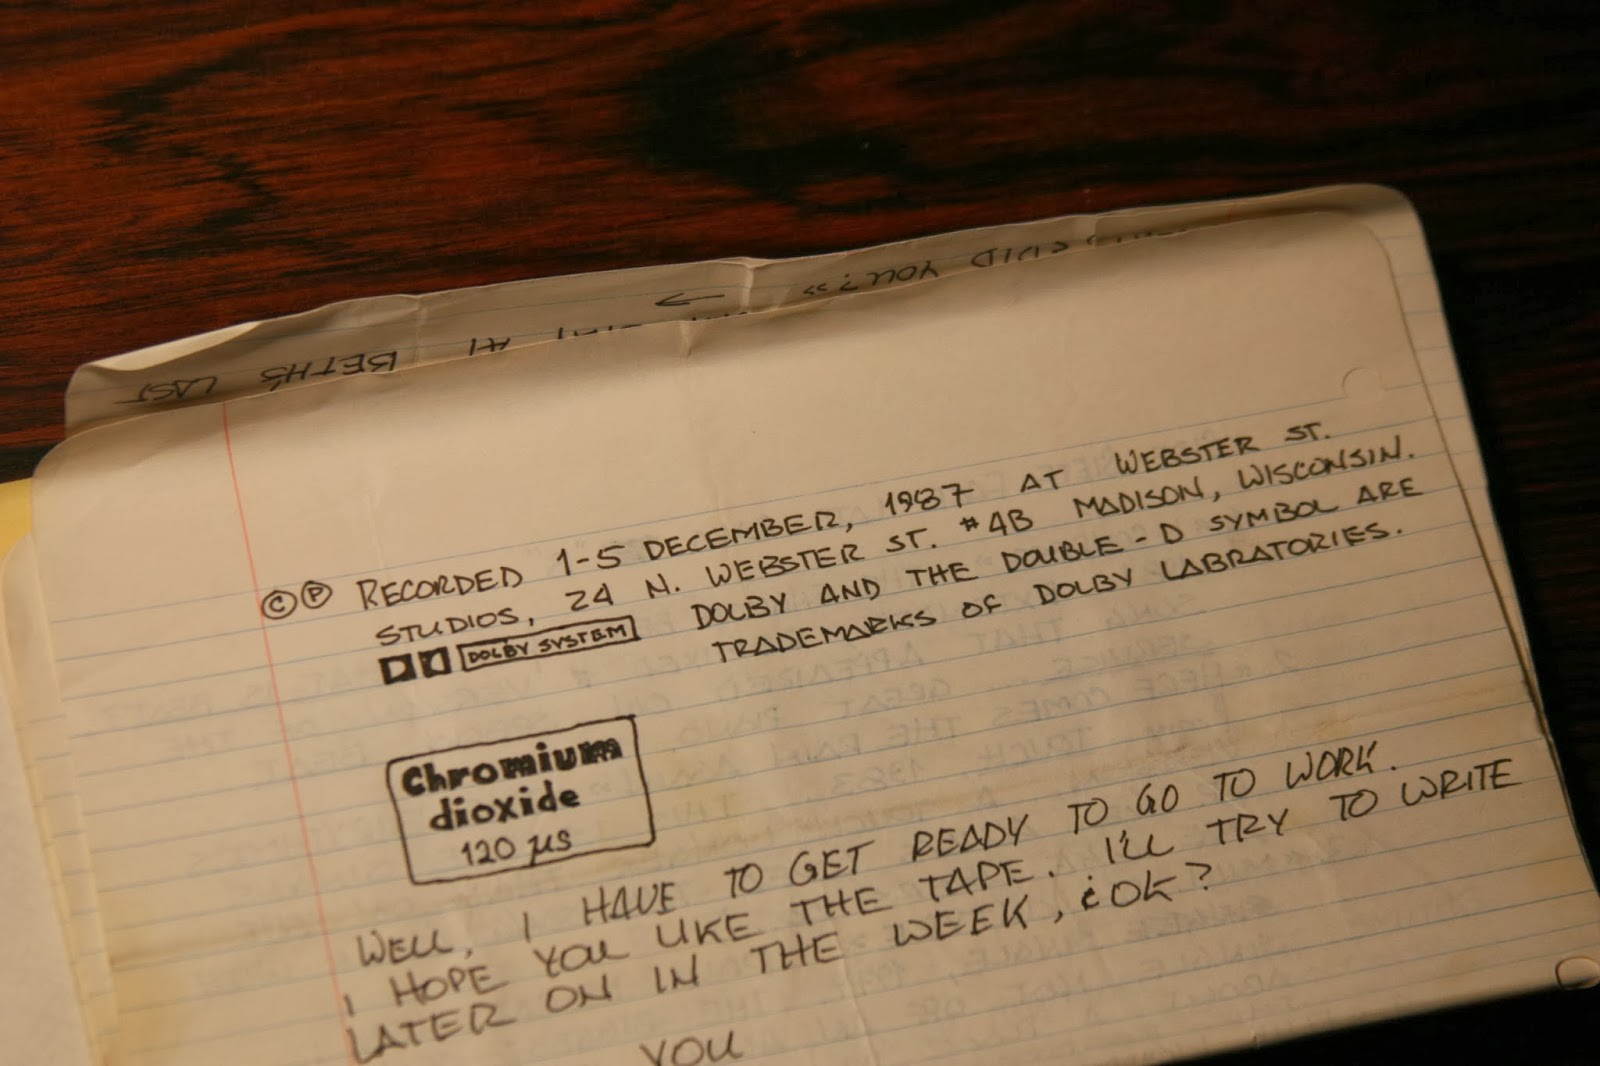 «DID YOU?»
→
BETH'S LAST
©℗ RECORDED 1-5 DECEMBER, 1987 AT WEBSTER ST.
STUDIOS, 24 N. WEBSTER ST. #4B MADISON, WISCONSIN.
DOLBY SYSTEM DOLBY AND THE DOUBLE-D SYMBOL ARE
TRADEMARKS OF DOLBY LABRATORIES.
Chromium
dioxide
120 µs
WELL, I HAVE TO GET READY TO GO TO WORK.
I HOPE YOU LIKE THE TAPE. I'LL TRY TO WRITE
LATER ON IN THE WEEK, ¿OK?
YOU